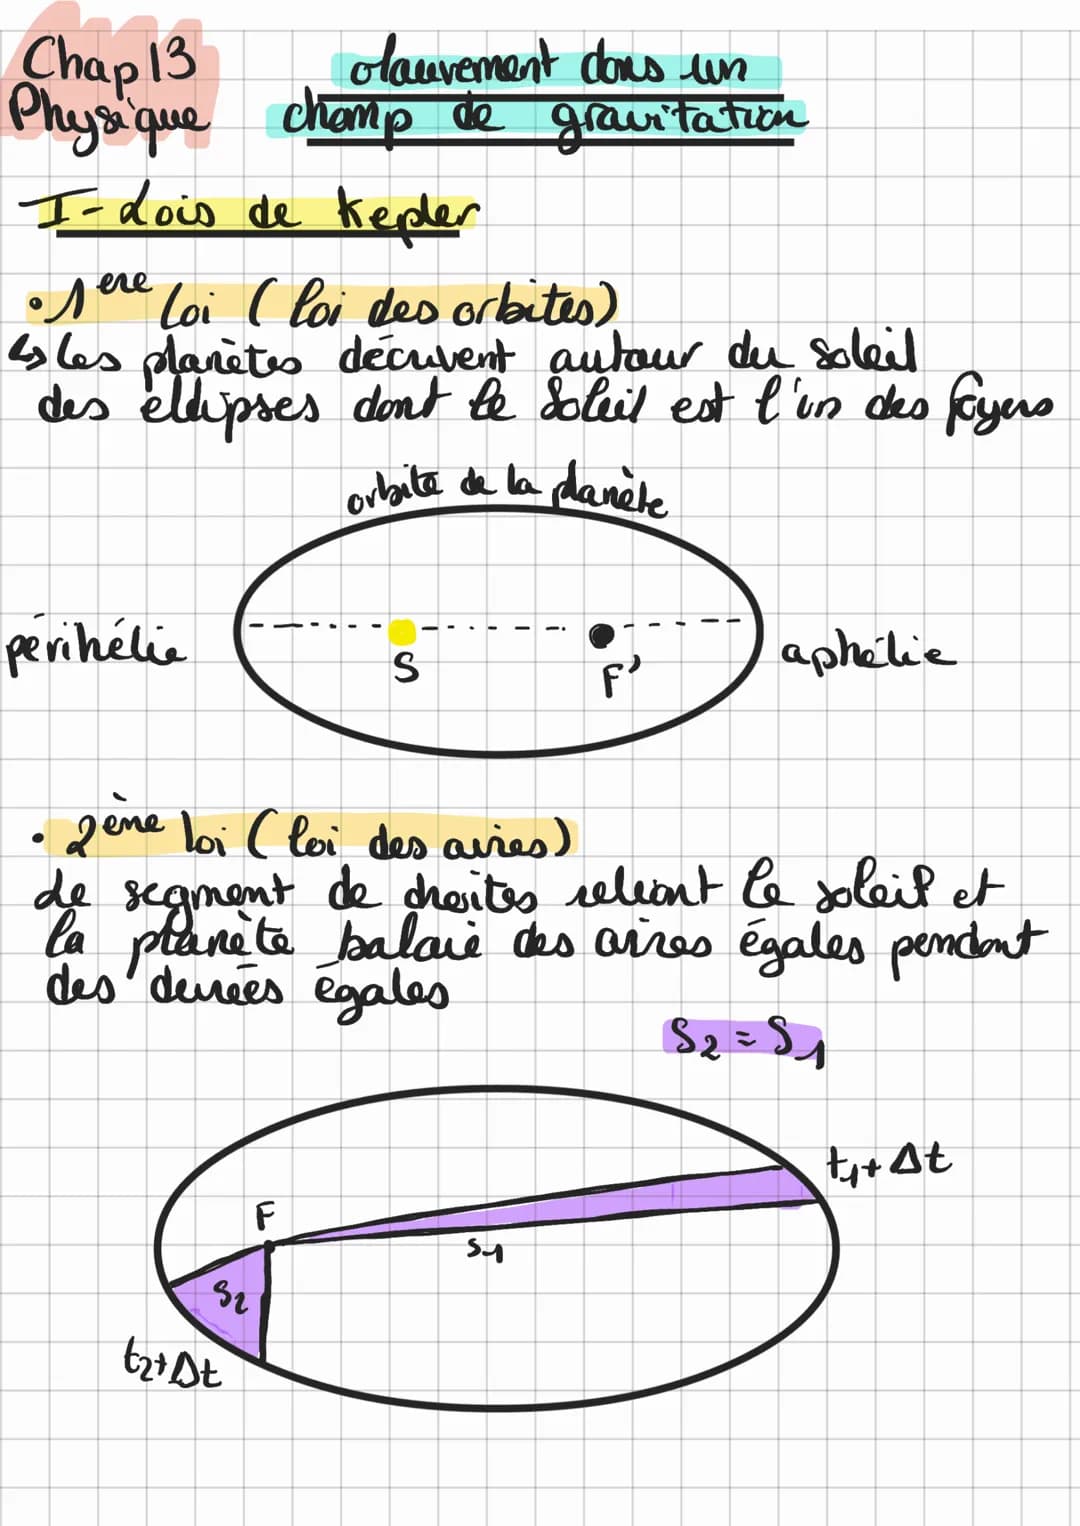 Chap 13
Physique
Mouvement dans un
champ de gravitation
I- Lois de Kepler
• 1ere loi ( loi des orbites)
↳ Les planètes décrivent autour du soleil
des ellipses dont le Soleil est l'un des foyers
orbite de la planète
périhélie
S
F'
aphélie
• 2ème loi ( loi des aires)
Le segment de droites reliant le soleil et
la planète balaie des aires égales pendant
des durées égales
S2 = S1
t1+ Δt
F
S1
S2
t2+Δt